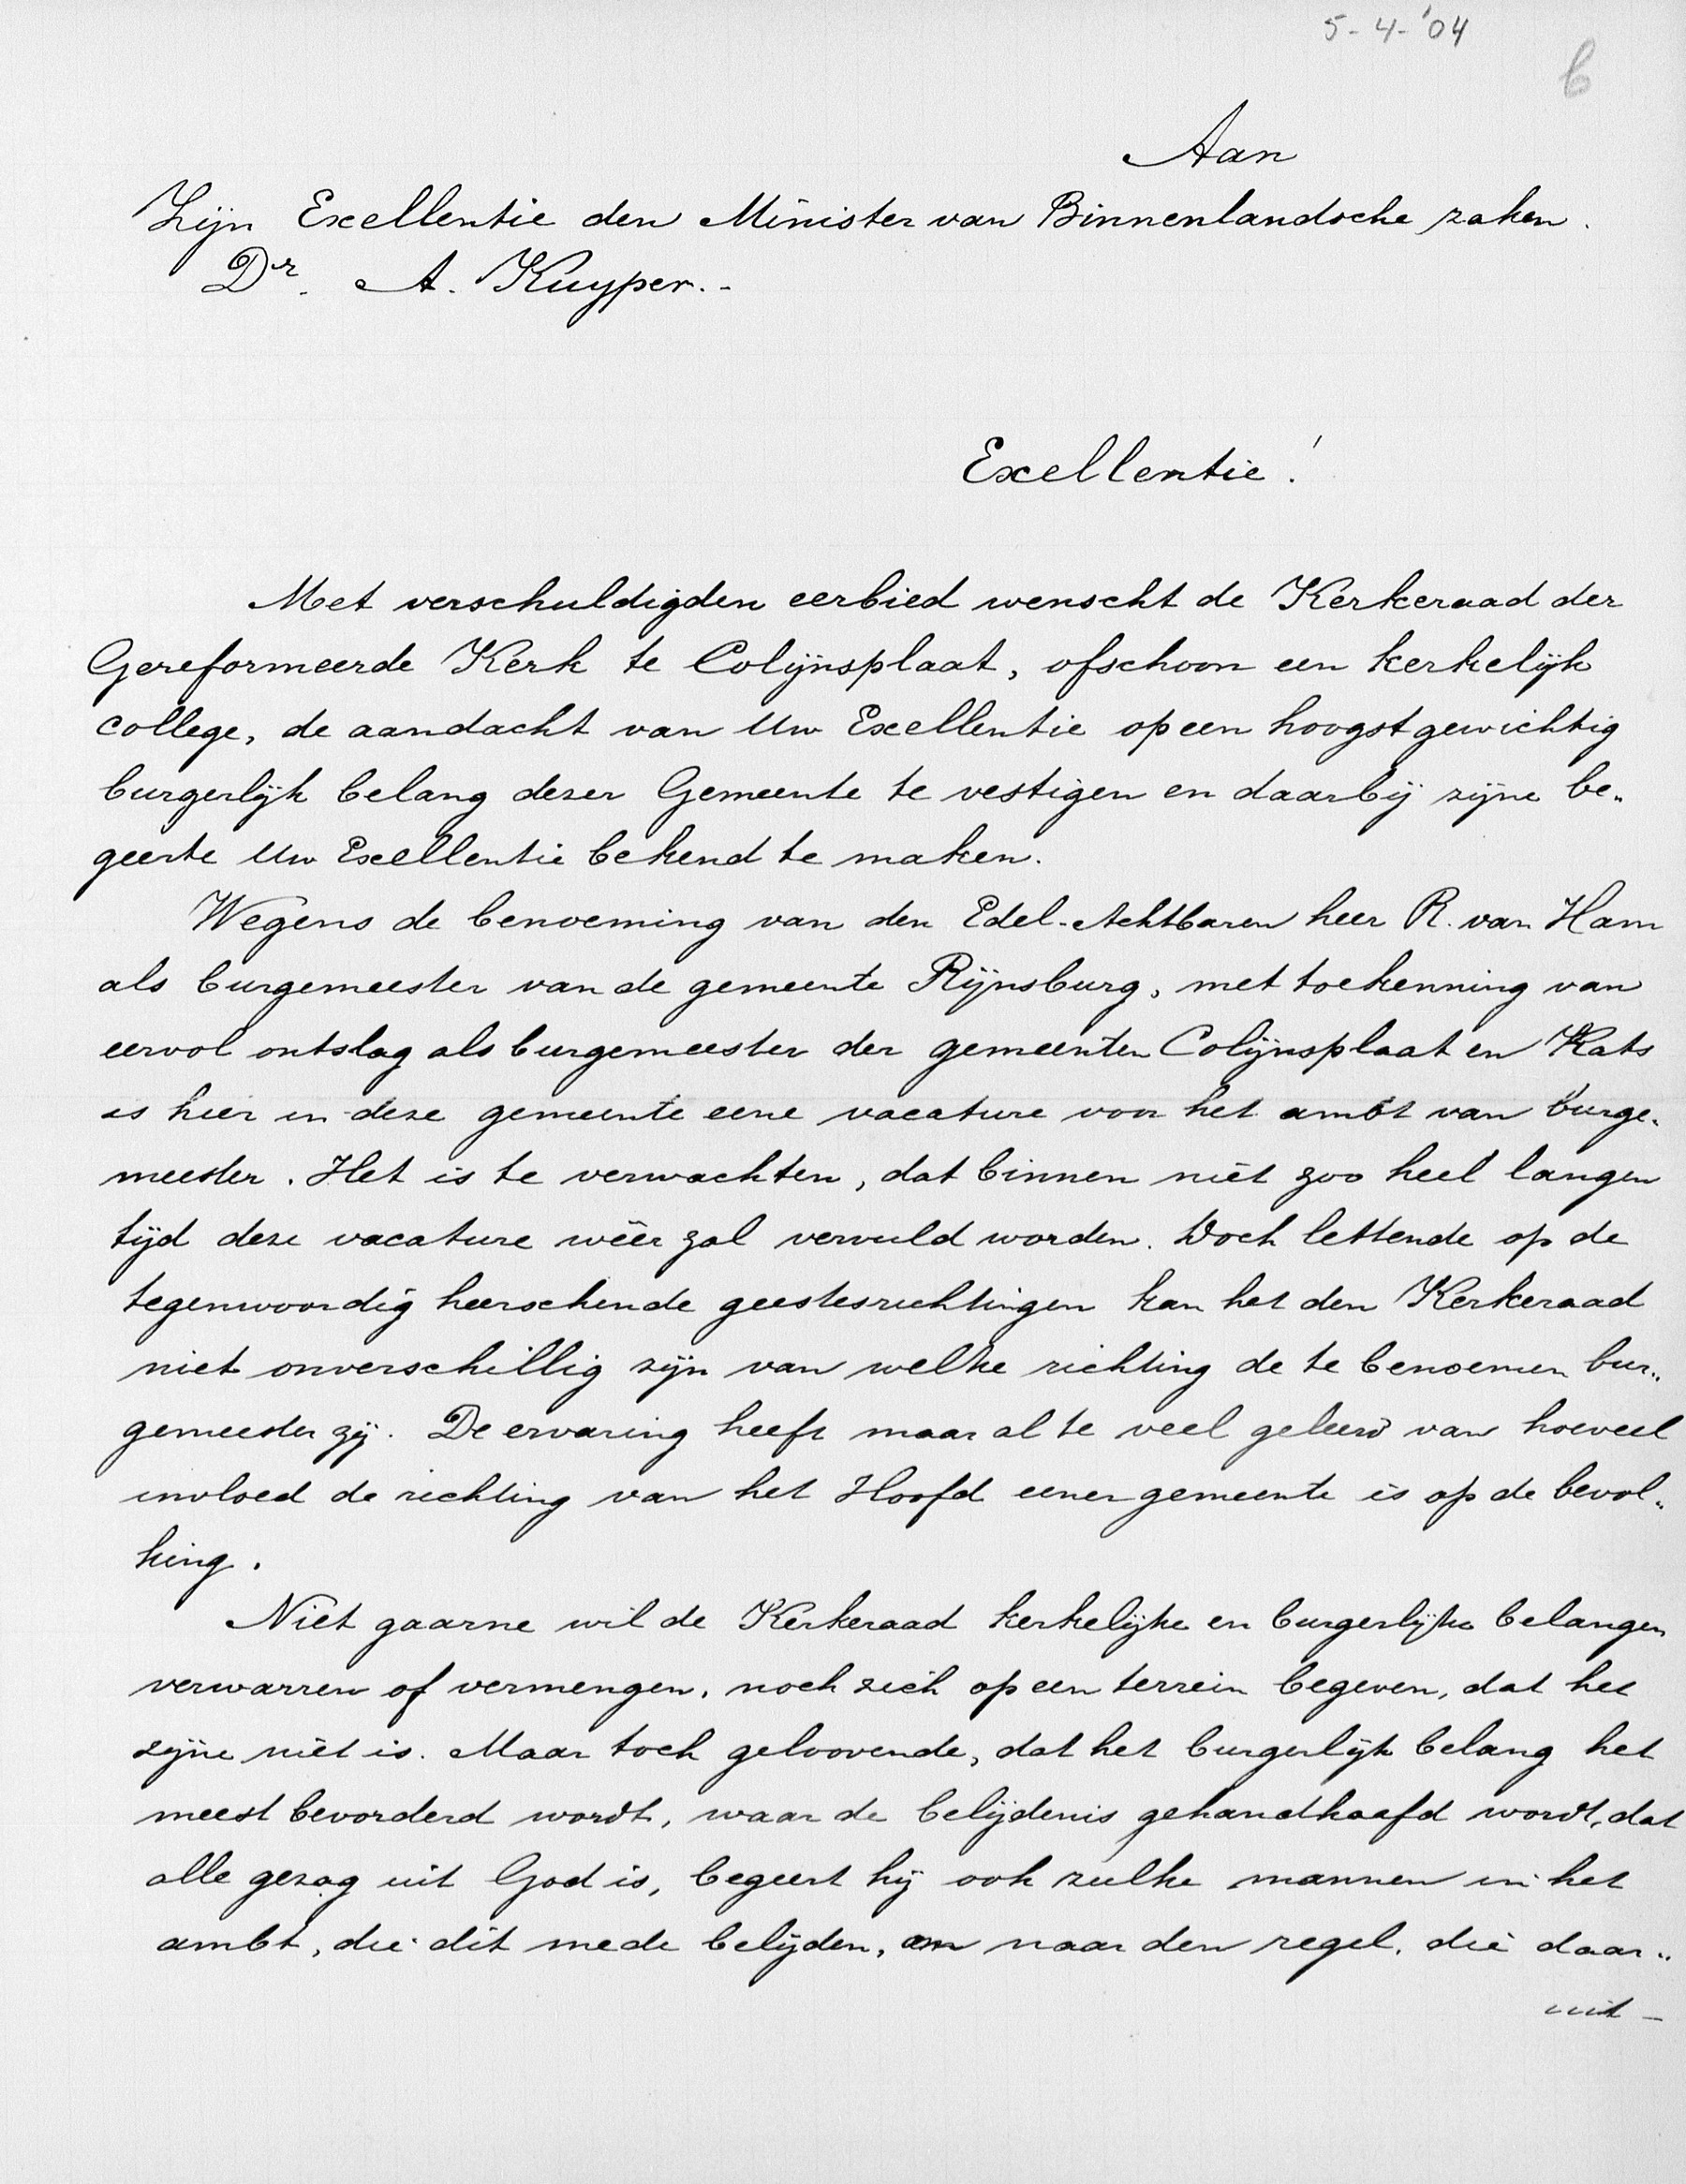 5-4-'04
b
Aan
Zijn Excellentie den Minister van Binnenlandsche zaken.
Dr. A. Kuyper.-
Excellentie!
Met verschuldigden eerbied wenscht de Kerkeraad der
Gereformeerde Kerk te Colijnsplaat, ofschoon een kerkelijk
college, de aandacht van Uw Excellentie op een hoogst gewichtig
burgerlijk belang dezer Gemeente te vestigen en daarbij zijne be-
geerte Uw Excellentie bekend te maken.
Wegens de benoeming van den Edel-Achtbaren heer R. van Ham
als burgemeester van de gemeente Rijnsburg, met toekenning van
eervol ontslag als burgemeester der gemeenten Colijnsplaat en Kats
is hier in deze gemeente eene vacature voor het ambt van burge-
meester. Het is te verwachten, dat binnen niet zoo heel langen
tijd deze vacature wêer zal vervuld worden. Doch lettende op de
tegenwoordig heerschende geestesrichtingen kan het den Kerkeraad
niet onverschillig zijn van welke richting de te benoemen bur-
gemeester zij. De ervaring heeft maar al te veel geleerd van hoeveel
invloed de richting van het Hoofd eener gemeente is op de bevol-
king.
Niet gaarne wil de Kerkeraad kerkelijke en burgerlijke belangen
verwarren of vermengen, noch zich op een terrein begeven, dat het
zijne niet is. Maar toch geloovende, dat het burgerlijk belang het
meest bevorderd wordt, waar de belijdenis gehandhaafd wordt, dat
alle gezag uit God is, begeert hij ook zulke mannen in het
ambt, die dit mede belijden, en naar den regel, die daar-
uit-